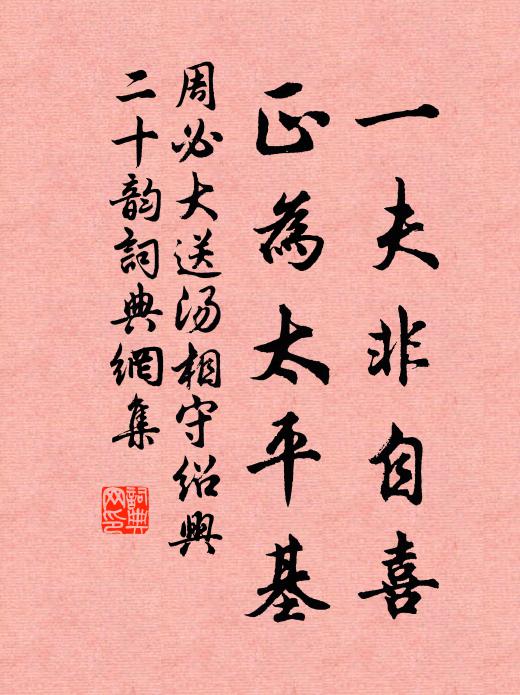 一夫非自喜
正為太平基
周必大送汤相守绍興
二十韵詞典網集
詞典
网印